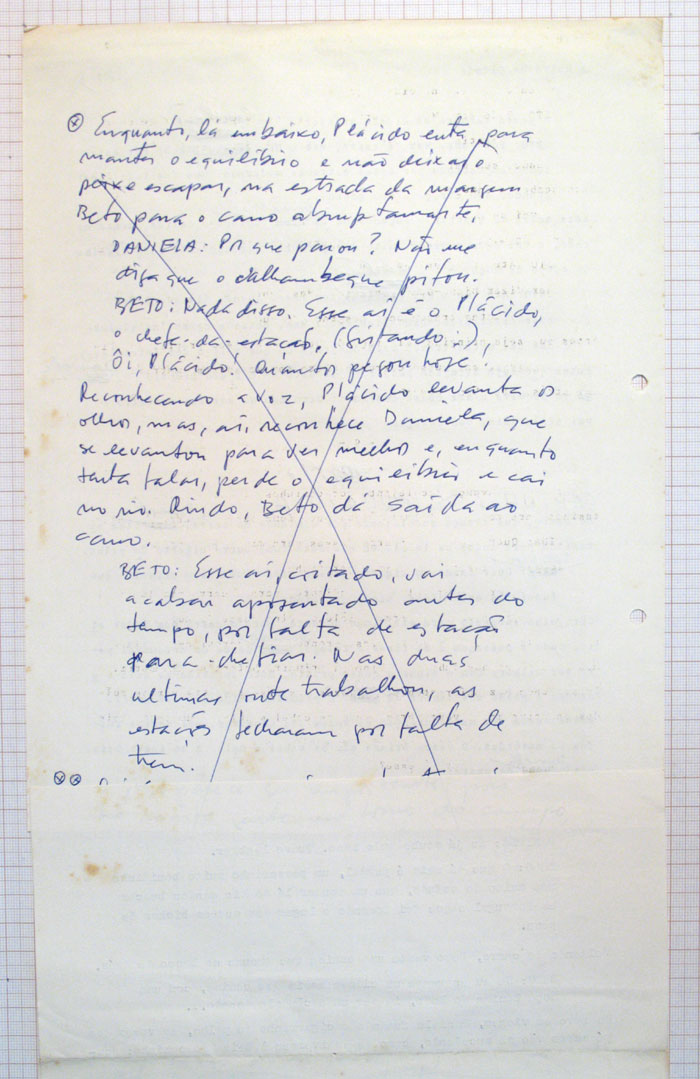 ⊗ Enquanto, lá embaixo, Plácido luta para
manter o equilíbrio e não deixar o
peixe escapar, na estrada da margem
Beto para o carro abruptamente.
DANIELA: Por que parou? Não me
diga que o calhambeque pifou.
BETO: Nada disso. Esse aí é o Plácido,
o chefe-da-estação. (Gritando:),
Ôi, Plácido! Quantos pegou hoje?
Reconhecendo a voz, Plácido levanta os
olhos, mas, aí, reconhece Daniela, que
se levantou para ver melhor e, enquanto
tenta falar, perde o equilíbrio e cai
no rio. Rindo, Beto dá saída ao
carro.
BETO: Esse aí, coitado, vai
acabar aposentado antes do
tempo, por falta de estação
para chefiar. Nas duas
últimas onde trabalhou, as
estações fecharam por falta de
trem.
⊗⊗